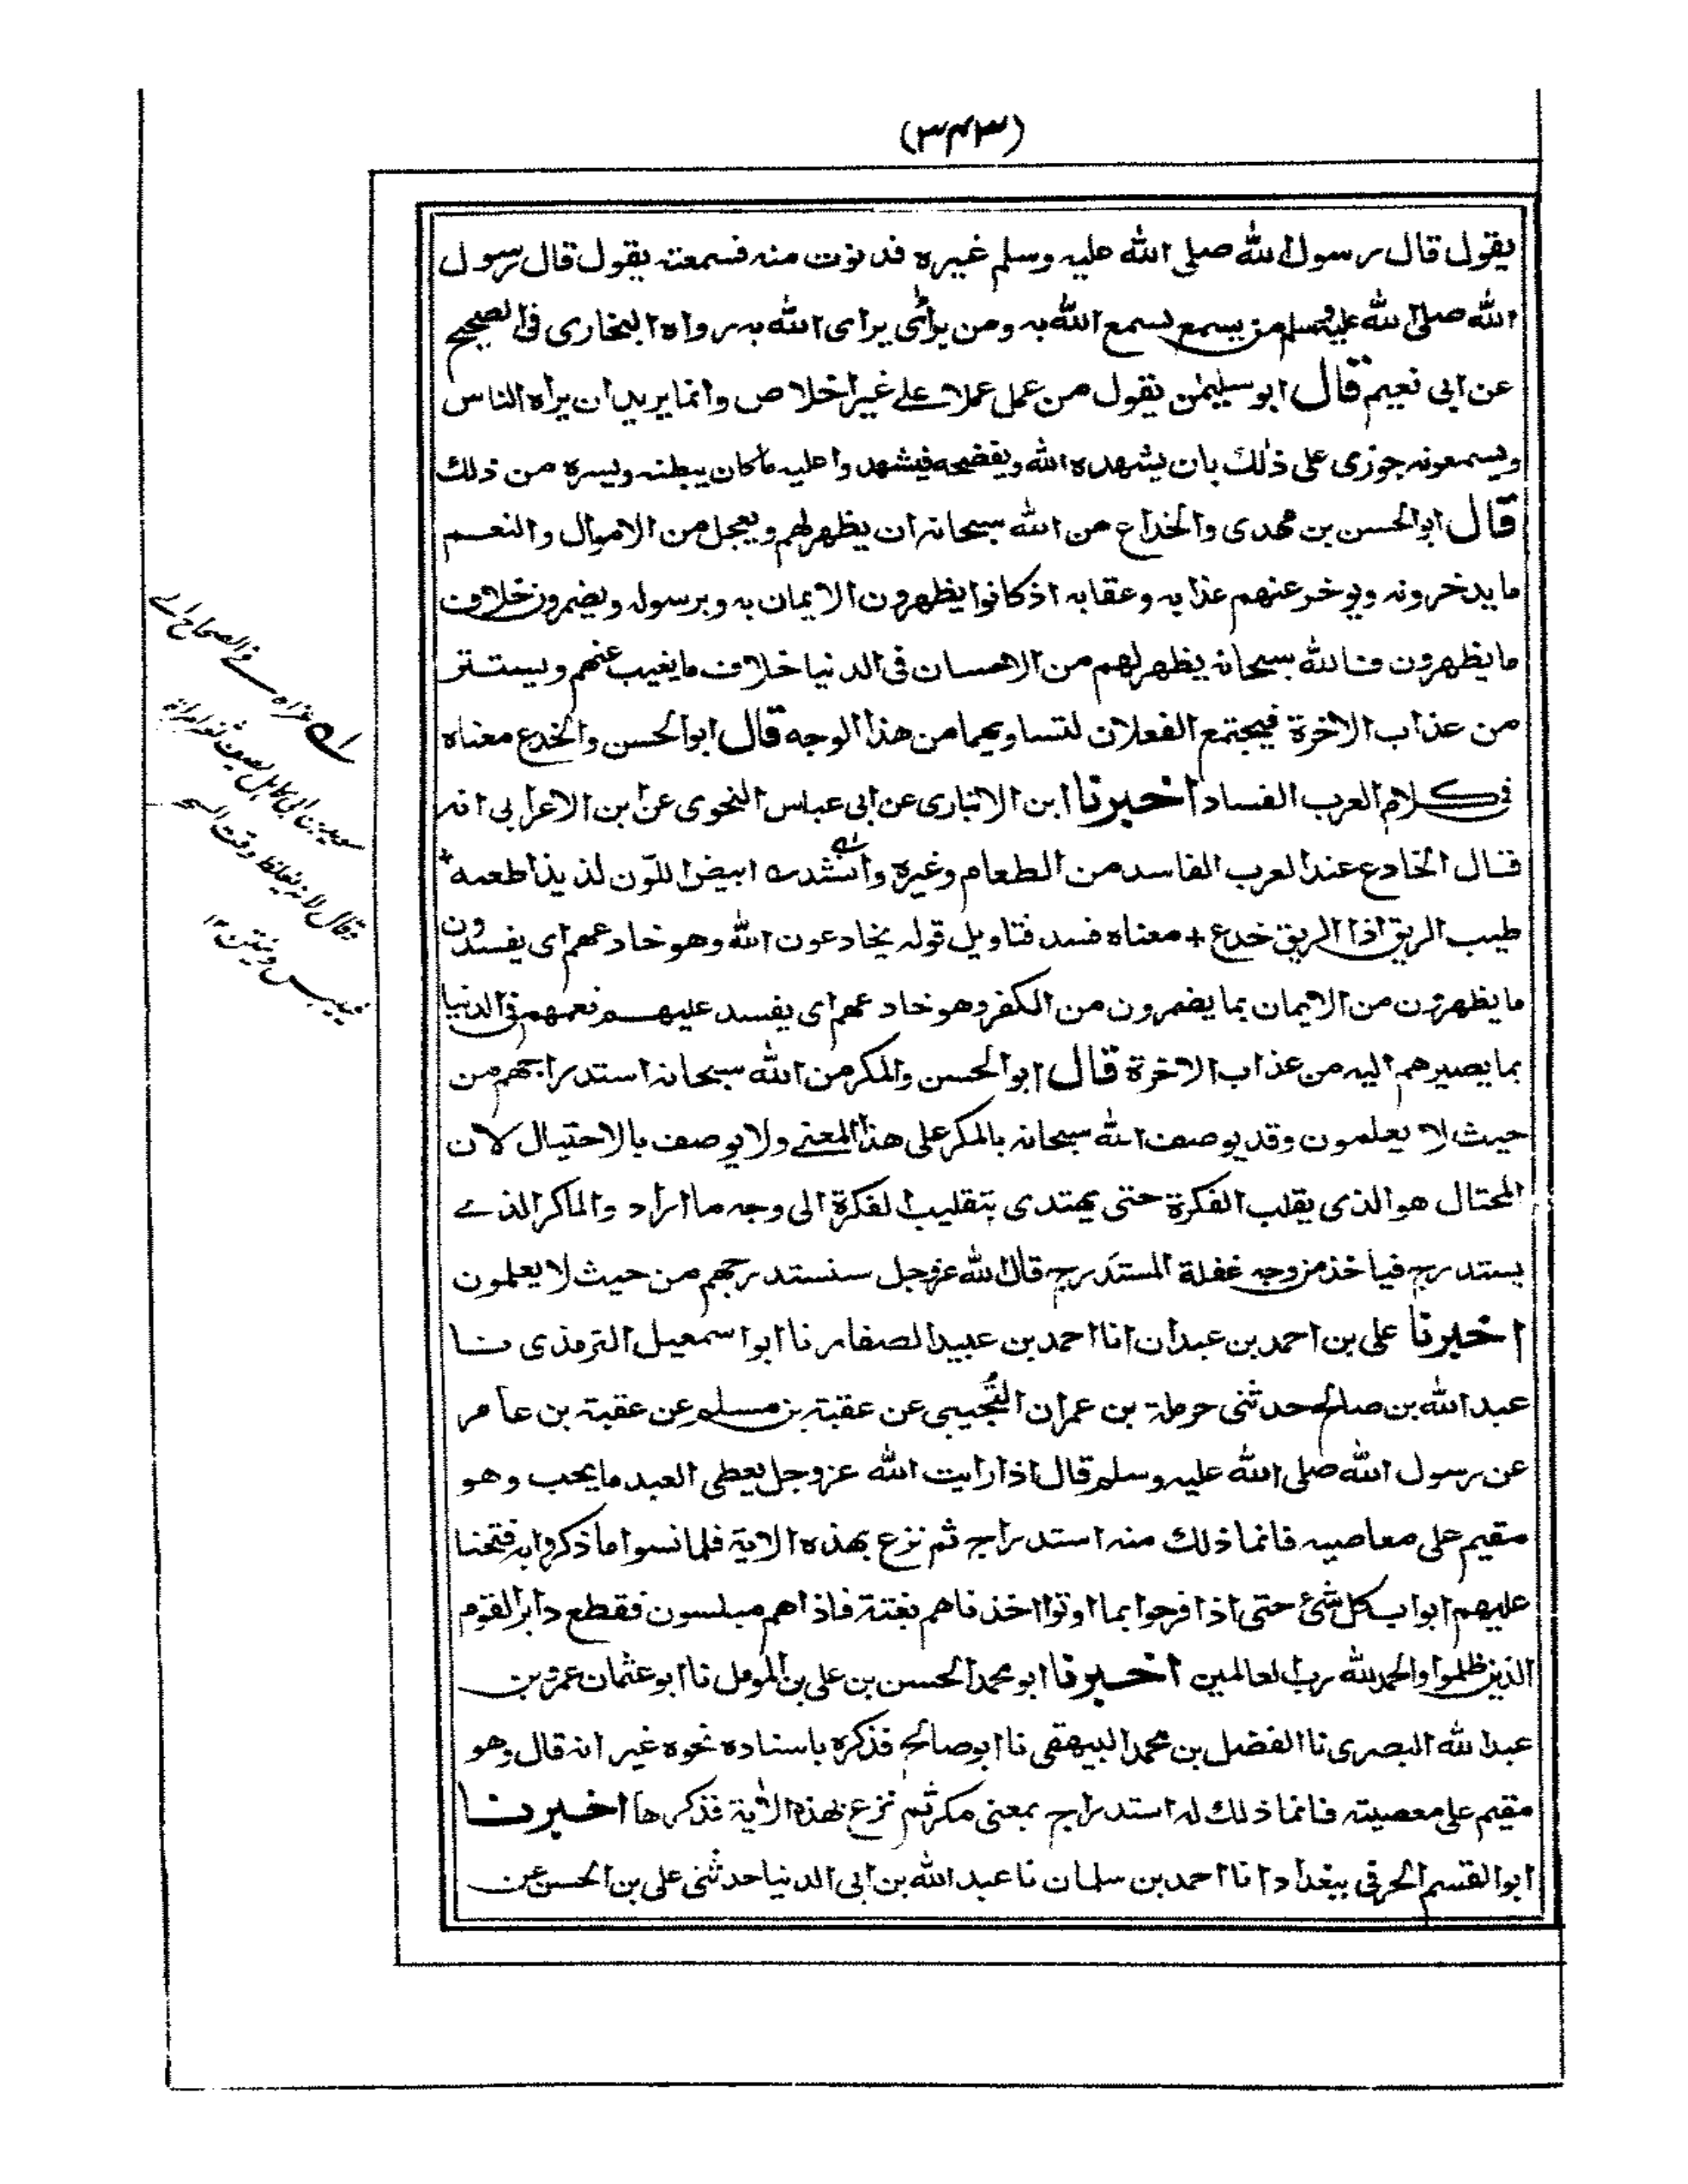 (٣٤٣)
يقول قال رسول الله صلى الله عليه وسلم غيره فدنوت منه فسمعته يقول قال رسول
الله صلى الله عليه وسلم من يسمع يسمع الله به ومن يرائى يراى الله به رواه البخارى فى الصحيح
عن ابى نعيم قال ابو سليمٰن يقول من عمل عملا على غير اخلاص وانما يريد ان يراه الناس
ويسمعونه جوزى على ذلك بان يشهده الله ويفضحه فيشهد واعليه ما كان يبطنه ويسره من ذلك
قال ابو الحسن بن محمدى والخداع من الله سبحانه ان يظهر لهم ويعجل من الاموال والنعم
ما يدخرونه ويوخر عنهم عذابه وعقابه اذ كانوا يظهرون الايمان به وبرسوله ويضمرون خلاف
ما يظهرون فالله سبحانه يظهر لهم من الاحسان فى الدنيا خلاف ما يغيب عنهم ويستتر
من عذاب الاخرة فيجتمع الفعلان لتساويهما من هذا الوجه قال ابو الحسن والخدع معناه
فى كلام العرب الفساد اخبرنا ابن الانبارى عن ابى عباس النحوى عن ابن الاعرابى انه
قال الخادع عند العرب الفاسد من الطعام وغيره وانشد له ابيض اللّون لذيذا طعمه *
طيب الريق اذا الريق خدع + معناه فسد فتاويل قوله يخادعون الله وهو خادعهم اى يفسدون
ما يظهرون من الايمان بما يضمرون من الكفر وهو خادعهم اى يفسد عليهم نعمهم فى الدنيا
بما يصيرهم اليه من عذاب الاخرة قال ابو الحسن والمكر من الله سبحانه استدراجهم من
حيث لا يعلمون وقد يوصف الله سبحانه بالمكر على هذا المعنى ولا يوصف بالاحتيال لان
المحتال هو الذى يقلب الفكرة حتى يهتدى بتقليب الفكرة الى وجه ما اراد والماكر الذى
يستدرج فيأخذ من وجه غفلة المستَدرج قال الله عزوجل سنستدرجهم من حيث لا يعلمون
اخبرنا على بن احمد بن عبدان انا احمد بن عبيد الصفار نا ابو اسمعيل الترمذى نا
عبد الله بن صالح حدثنى حرملة بن عمران التُّجيبى عن عقبة بن مسلم عن عقبة بن عامر
عن رسول الله صلى الله عليه وسلم قال اذا رايت الله عزوجل يعطى العبد ما يحب وهو
مقيم على معاصيه فانما ذلك منه استدراج ثم نزع بهذه الاية فلما نسوا ما ذكروا به فتحنا
عليهم ابواب كل شئ حتى اذا فرحوا بما اوتوا اخذناهم بغتة فاذاهم مبلسون فقطع دابر القوم
الذين ظلموا والحمد لله رب العالمين اخبرنا ابو محمد الحسن بن على بن المومل نا ابو عثمان عمرو بن
عبد الله البصرى نا الفضل بن محمد البيهقى نا ابو صالح فذكره باسناده نحوه غير انه قال وهو
مقيم على معصيته فانما ذلك له استدراج بمعنى مكر ثم نزع بهذه الاٰية فذكرها اخبرنا
ابو القسم الحرفى ببغداد انا احمد بن سلمان نا عبد الله بن ابى الدنيا حدثنى على بن الحسن عن
له عزاه فى الصحاح الى
سويد بن ابى كاهل يصف ثغر امراة
وقال لانه يغلظ وقت السحر
فييبس وينتن ١٢